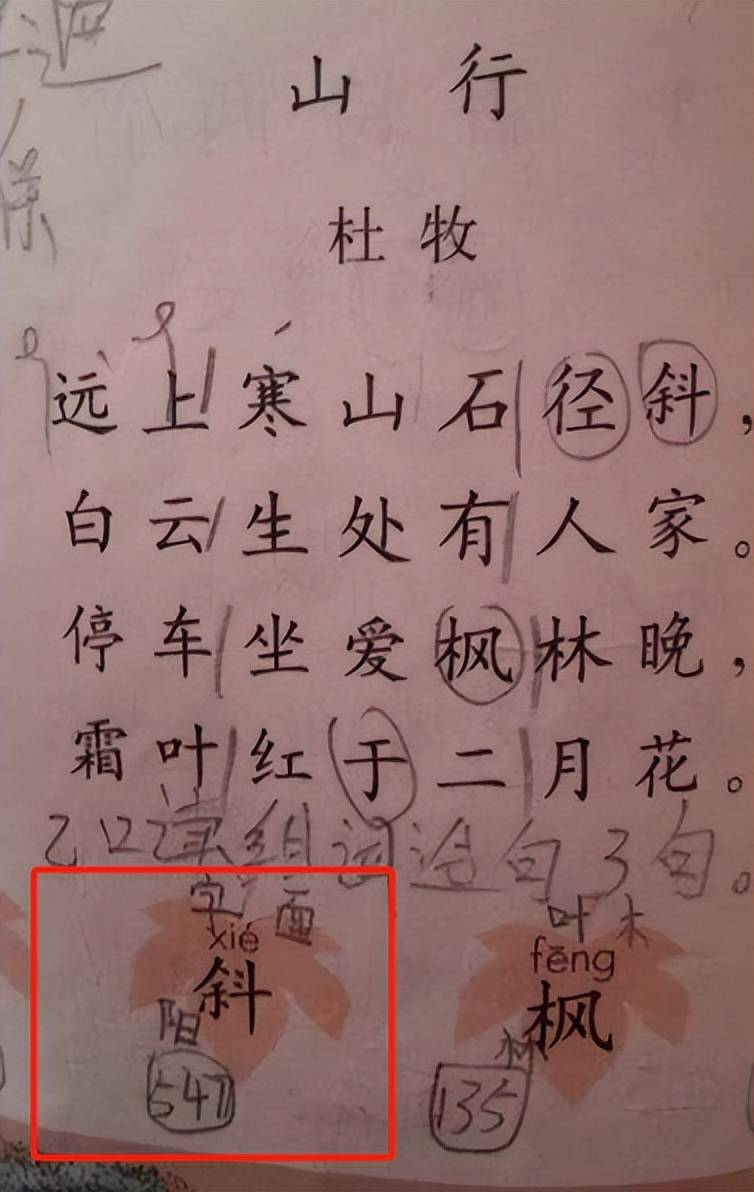 山行
杜牧
远上寒山石径斜，
白云生处有人家。
停车坐爱枫林晚，
霜叶红于二月花。
口读组词造句3句。
字面 叶木
xié fēng
斜 枫
阳 林
547 135